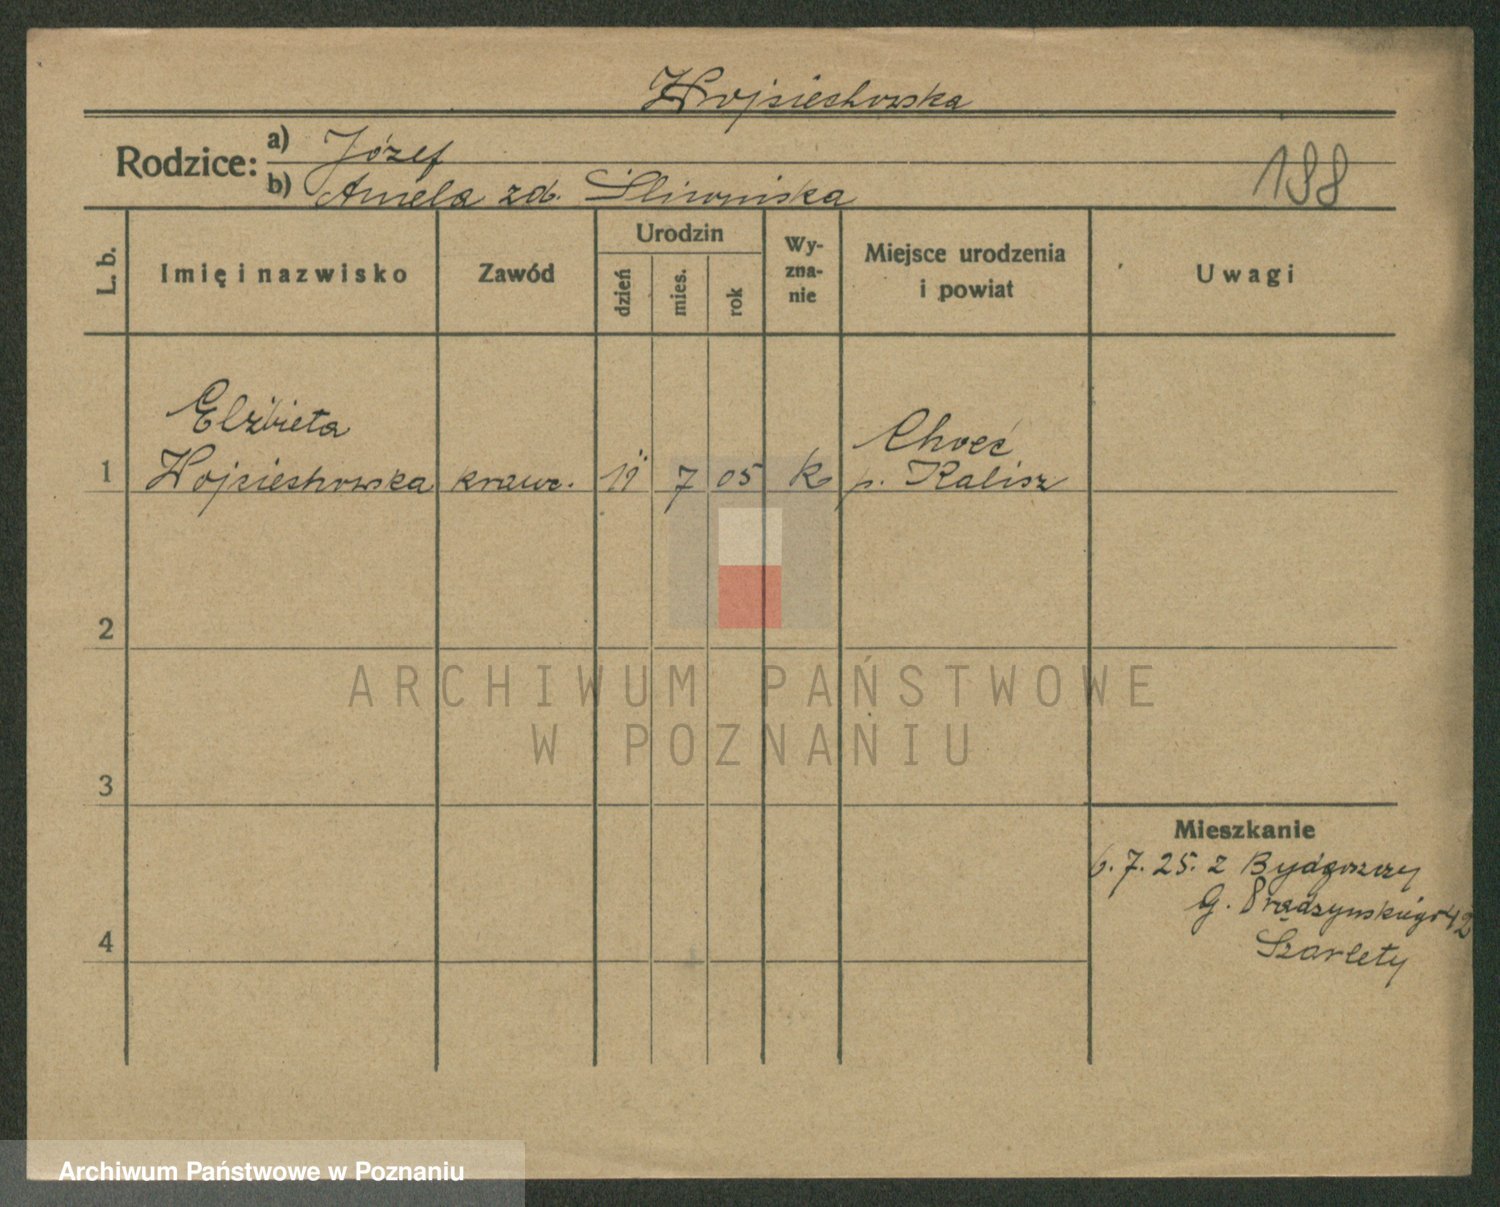 Wojciechowska
Rodzice: a) Józef
b) Aniela zd. Śliwińska
188
L. b.
Imię i nazwisko
Zawód
Urodzin
dzień
mies.
rok
Wy-
zna-
nie
Miejsce urodzenia
i powiat
Uwagi
Elżbieta
Choć
1 Wojciechowska krawc. 7 05 k p. Kalisz
2
3
4
Mieszkanie
6. 7. 25. z Bydgoszczy
G. Prądzyńskiego 42
Szarlety
ARCHIWUM PAŃSTWOWE
W POZNANIU
Archiwum Państwowe w Poznaniu